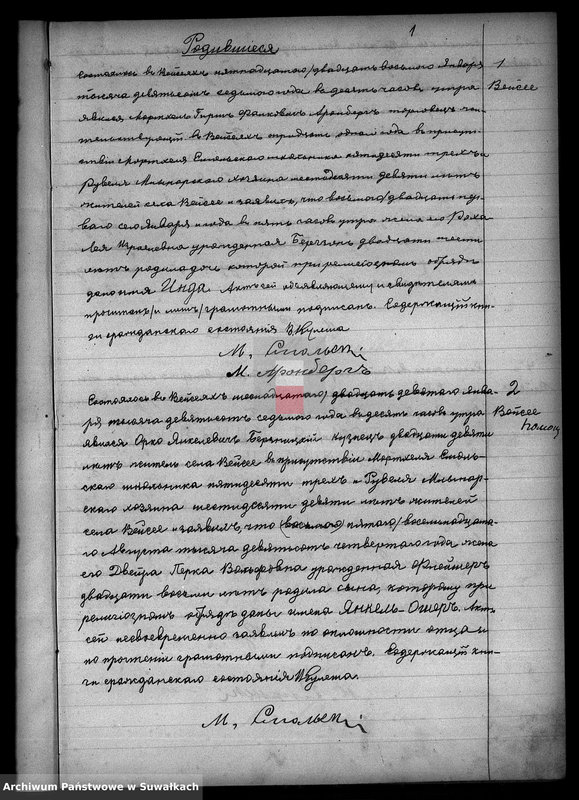 Родившіеся
1
Состоялось въ Вейсеяхъ пятнадцатаго/двадцать восьмого Января
тысяча девятьсотъ седьмого года въ десять часовъ утра
явился Мортхель Гиршъ Фалковичъ Аронбергъ торговецъ жи-
тельствующій въ Вейсеяхъ тридцати одного года въ присут-
ствіи Мортхеля Смольскаго школьника пятидесяти трехъ и
Рувеля Млынарскаго хозяина шестидесяти девяти лѣтъ
жителей села Вейсее и заявилъ, что восьмого/двадцать пер-
ваго сего Января и года въ пять часовъ утра жена его Роха
Лея Израелевна урожденная двадцати шести
лѣтъ родила дочь которой при религіозномъ обрядѣ
дано имя Инда. Актъ сей объявляющему и свидѣтелямъ
прочитанъ, и ими грамотными подписанъ. Содержащій кни-
ги гражданскаго состоянія В. Кулеша
М. Смольскій
М. Аронбергъ
1
Вейсее
Состоялось въ Вейсеяхъ шестнадцатаго/двадцать девятаго Янва-
ря тысяча девятьсотъ седьмого года въ десять часовъ утра
явился Орко Янкелевичъ Берзницкій кузнецъ двадцати девяти
лѣтъ житель села Вейсее въ присутствіи Мортхеля Смоль-
скаго школьника пятидесяти трехъ и Рувеля Млынар-
скаго хозяина шестидесяти девяти лѣтъ жителей
села Вейсее и заявилъ, что (восьмого) пятаго/восемнадцата-
го Августа тысяча девятьсотъ четвертаго года жена
его Двейра Перка Вольфовна урожденная Флейшеръ
двадцати восьми лѣтъ родила сына, которому при
религіозномъ обрядѣ даны имена Янкель-Ошеръ. Актъ
сей несвоевременно заявленъ по оплошности отца и
по прочтеніи грамотными подписанъ. Содержащій кни-
ги гражданскаго состоянія В. Кулеша.
М. Смольскій
2
Вейсее
Archiwum Państwowe w Suwałkach